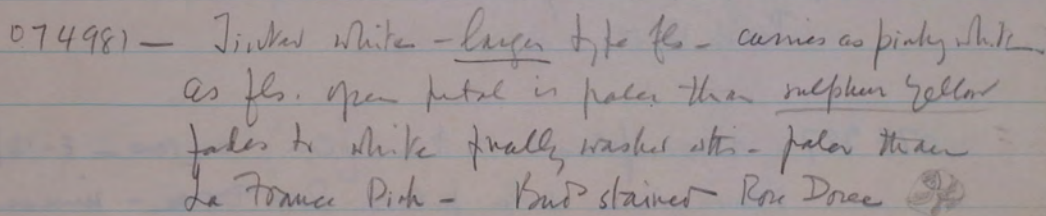 074981 — Tinted white - larger type fls - carries as pinky white
as fls. open petal is paler than sulphur yellow
fades to white finally washed with - paler than
La France Pink - Bud stained Rose Doree